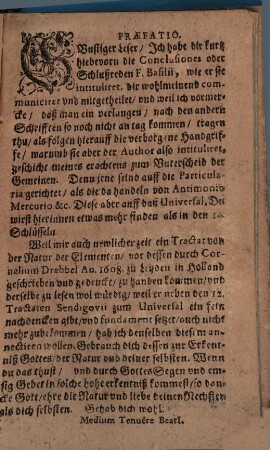 PRÆFATIO.
GVnstiger Leser / Ich habe dir kurtz
hiebevorn die Conclusiones oder
Schlußreden F. Basilii, wie er sie
intituliret, dir wohlmeinend com-
municiret und mitgetheilet / und weil ich vormer-
cke / daß man ein verlangen / nach den andern
Schrifften so noch nicht an tag kommen / tragen
thu / als folgen hierauff die verborgene Handgrif-
fe / warumb sie aber der Author also intituliret,
geschicht meines erachtens zum Unterscheid der
Gemeinen. Denn jene seind auff die Particula-
ria gerichtet / als die da handeln von Antimonio
Mercurio &c. Diese aber auff daß Universal, Du
wirst hierinnen etwas mehr finden als in den 12.
Schlüsseln.
Weil mir auch newlicher zeit ein Tractat von
der Natur der Elementen / vor dessen durch Cor-
nelium Drebbel An. 1608. zu Leyden in Holland
geschrieben und gedruckt / zu handen kommen / und
derselbe zu lesen wol würdig / weil er neben den 12.
Tractaten Sendigovii zum Universal ein fein
nachdencken gibt / und fundament setzet / auch nicht
mehr zubekommen / hab ich denselben diesem an-
nectiren wollen. Gebrauch dich dessen zur Erkent-
niß Gottes / der Natur und deiner selbsten. Wenn
du das thust / und durch Gottes Segen und em-
sig Gebet in solche hohe erkentniß kommest / so dan-
cke Gott / ehre die Natur und liebe deinen Nechsten
als dich selbsten. Gehab dich wohl.
Medium Tenuêre Beati.